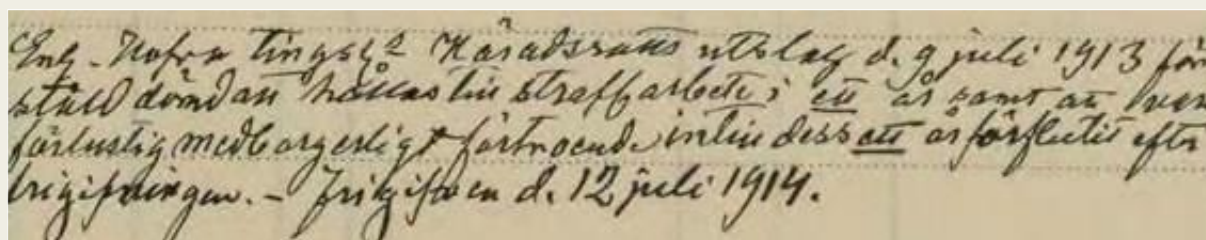 Enl. Norra Tingsl:s Häradsrätts utslag d. 9 juli 1913 för
stöld dömd att hållas till straffarbete i ett år samt att var
förlustig medborgerligt förtroende intill dess ett år förflutit efter
frigifningen. - Frigifven d. 12 juli 1914.